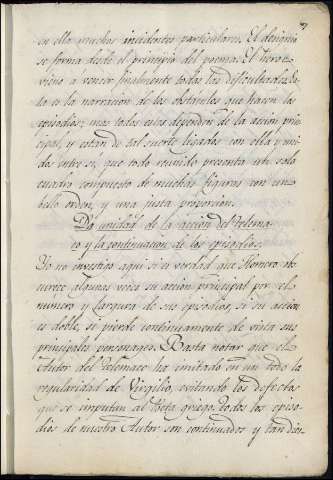 en ella muchos incidentes particulares. El designio
se forma desde el principio del poema: El heroe
viene a vencer finalmente todas las dificultades. Es-
ta es la narracion de los obstaculos que hacen los
episodios; mas todos estos dependen de la accion prin-
cipal, y estan de tal suerte ligados con ella y uni-
dos entre si, que todo reunido presenta un solo
cuadro compuesto de muchas figuras con un
bello orden, y una justa proporcion.
La unidad de la accion del Telema-
co y la continuacion de los episodios.
Yo no investigo aqui si es verdad que Homero obs-
curece algunas veces su accion principal por el
numero y largura de sus episodios, si su accion
es doble, si pierde continuamente de vista sus
principales personages. Basta notar que el
Autor del Telemaco ha imitado en un todo la
regularidad de Virgilio, evitando los defectos
que se imputan al Poeta griego. Todos los episo-
dios de nuestro Autor son continuados y tan dies-